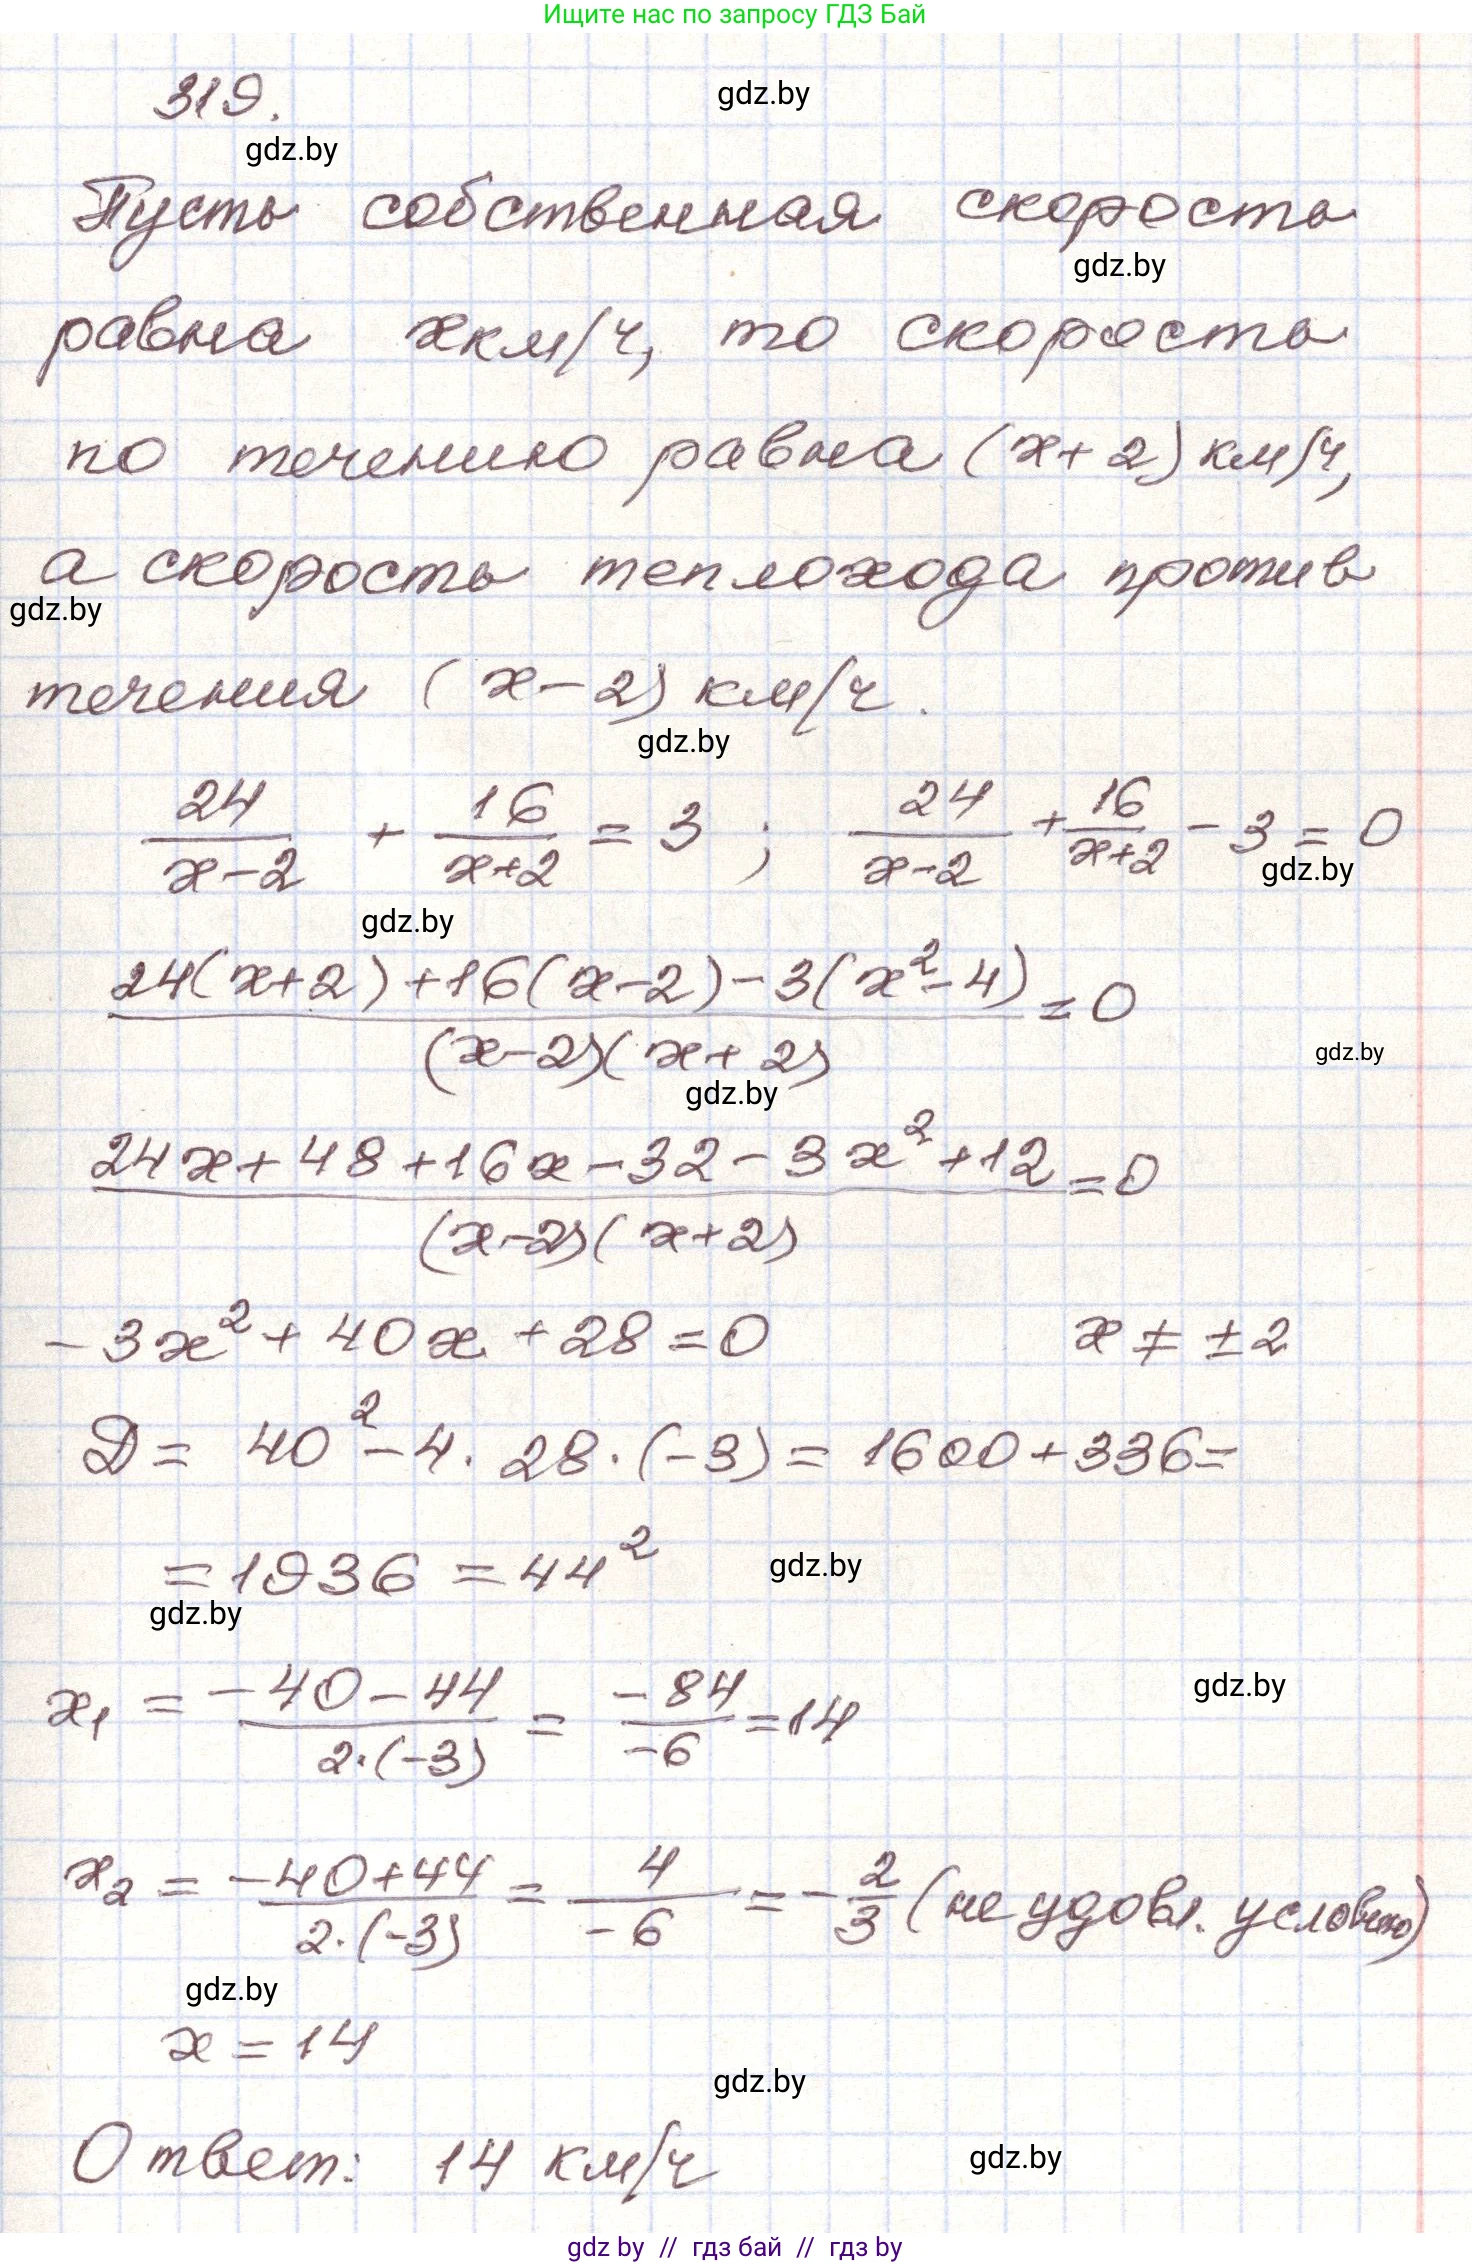 Ищите нас по запросу ГДЗ Бай
319.
gdz.by
gdz.by
Пусть собственная скорость
gdz.by
равна x км/ч, то скорость
по течению равна (x+2) км/ч,
а скорость теплохода против
gdz.by
течения (x-2) км/ч.
gdz.by
24/(x-2) + 16/(x+2) = 3 ; 24/(x-2) + 16/(x+2) - 3 = 0
gdz.by
gdz.by
(24(x+2)+16(x-2)-3(x²-4))/((x-2)(x+2)) = 0
gdz.by
gdz.by
(24x+48+16x-32-3x²+12)/((x-2)(x+2)) = 0
-3x²+40x+28=0 x ≠ ±2
D = 40²-4·28·(-3) = 1600+336=
=1936 = 44²
gdz.by
gdz.by
x₁ = (-40-44)/(2·(-3)) = -84/-6 = 14
gdz.by
x₂ = (-40+44)/(2·(-3)) = 4/-6 = -2/3 (не удовл. условию)
gdz.by
x = 14
gdz.by
Ответ: 14 км/ч
gdz.by
gdz by // гдз бай // гдз by